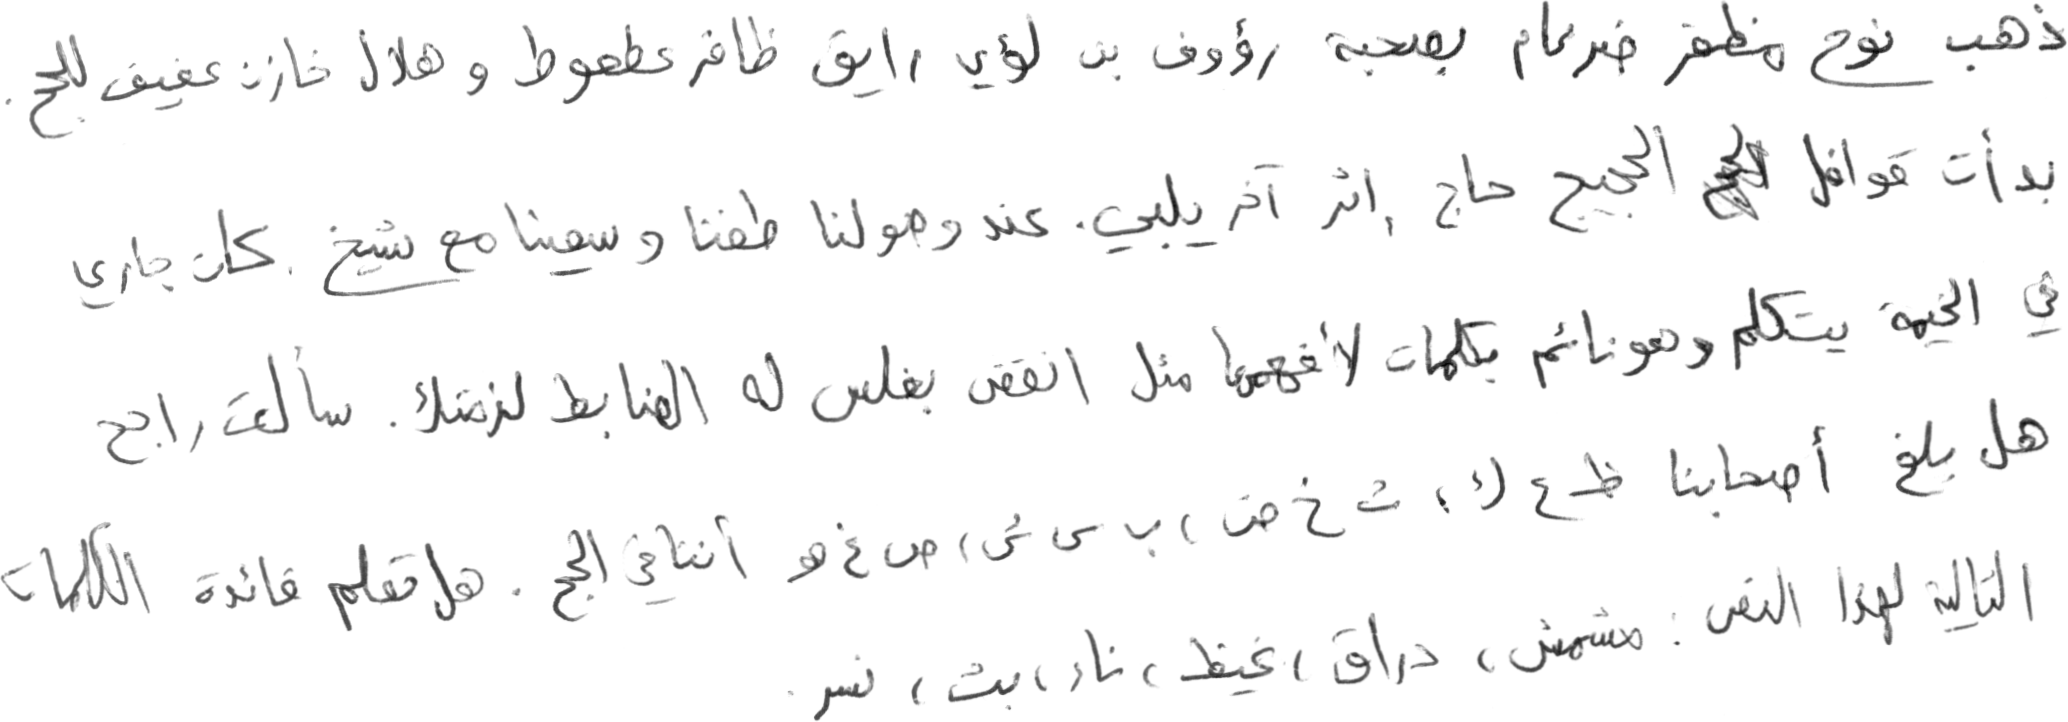 ذهب نوح مظفر ضرغام بصحبة رؤوف بن لؤي رايق ظافر عطعوط و هلال خازن عفيف للحج .
بدأت قوافل الحجيج حاج إثر آخر يلبي . عند وصولنا طفنا و سعينا مع شيخ . كان جاري
في الخيمة يتكلم وهو نائم بكلمات لا أفهمها مثل انفض بغلس له الضابط لزمتك . سألت راجح
هل بلغ أصحابنا ظ ع ك ، ث خ ض ، ب س ش ، ص غ هو أننا في الحج . هل تعلم فائدة الكلمات
التالية لهذا النص : مشمش ، دراق ، غيظ ، ناد ، بث ، نسر .